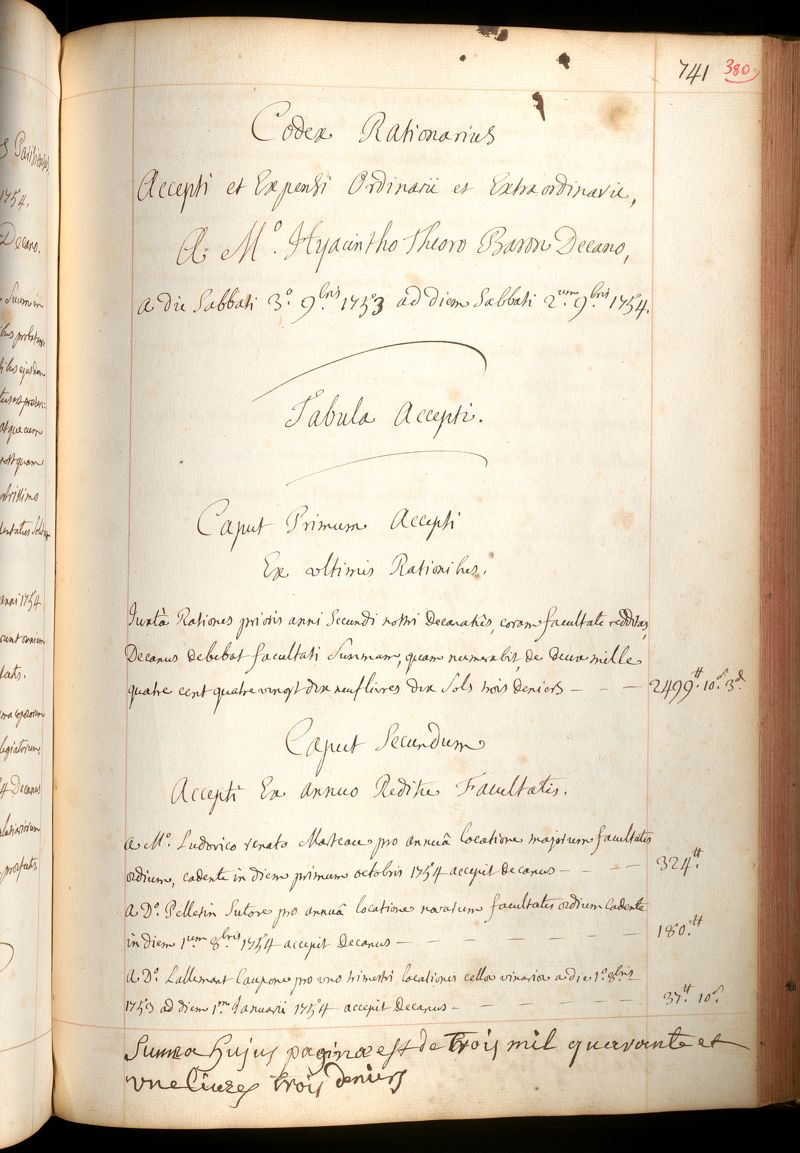 s Parisiensis,
1754.
Decano.
741 380
Codex Rationarius
Accepti et Expensi Ordinarii et Extraordinarii,
A. M.º Hyacintho Theoro Baron Decano,
a die Sabbati 3º. 9.bris 1753 ad diem Sabbati 2.um 9.bris 1754.
Tabula Accepti.
Caput Primum Accepti
Ex ultimis Rationibus.
Juxtà Rationes prioris anni Secundi nostri decanatûs, coram facultate redditas,
Decanus debebat facultati Summam, quam numerabit, de deux mille
quatre cent quatre vingt dix neuf livres dix Sols trois deniers — — — 2499.tt 10.s 3.d
Caput Secundum
Accepti Ex annuo Reditu Facultatis.
A Mº. Ludovico renato Marteau pro annuâ locatione majorum facultatis
ædium, cadente in diem primum octobris 1754 accepit decanus — — — — 324.tt
A Dº. Pelletin Sutore pro annuâ locatione novarum facultatis ædium cadente
in diem 1.um 8.bris 1754 accepit Decanus — — — — — — — 180.tt
A Dº. Lallemant Caupone pro uno trimestri locationis cellæ vinariæ a die 1º. 8.bris
1753 ad diem 1.um Januarii 1754 accepit Decanus — — — — — — 37.tt 10.s
Summa hujus paginæ est de trois mil quarante et
une livres trois deniers